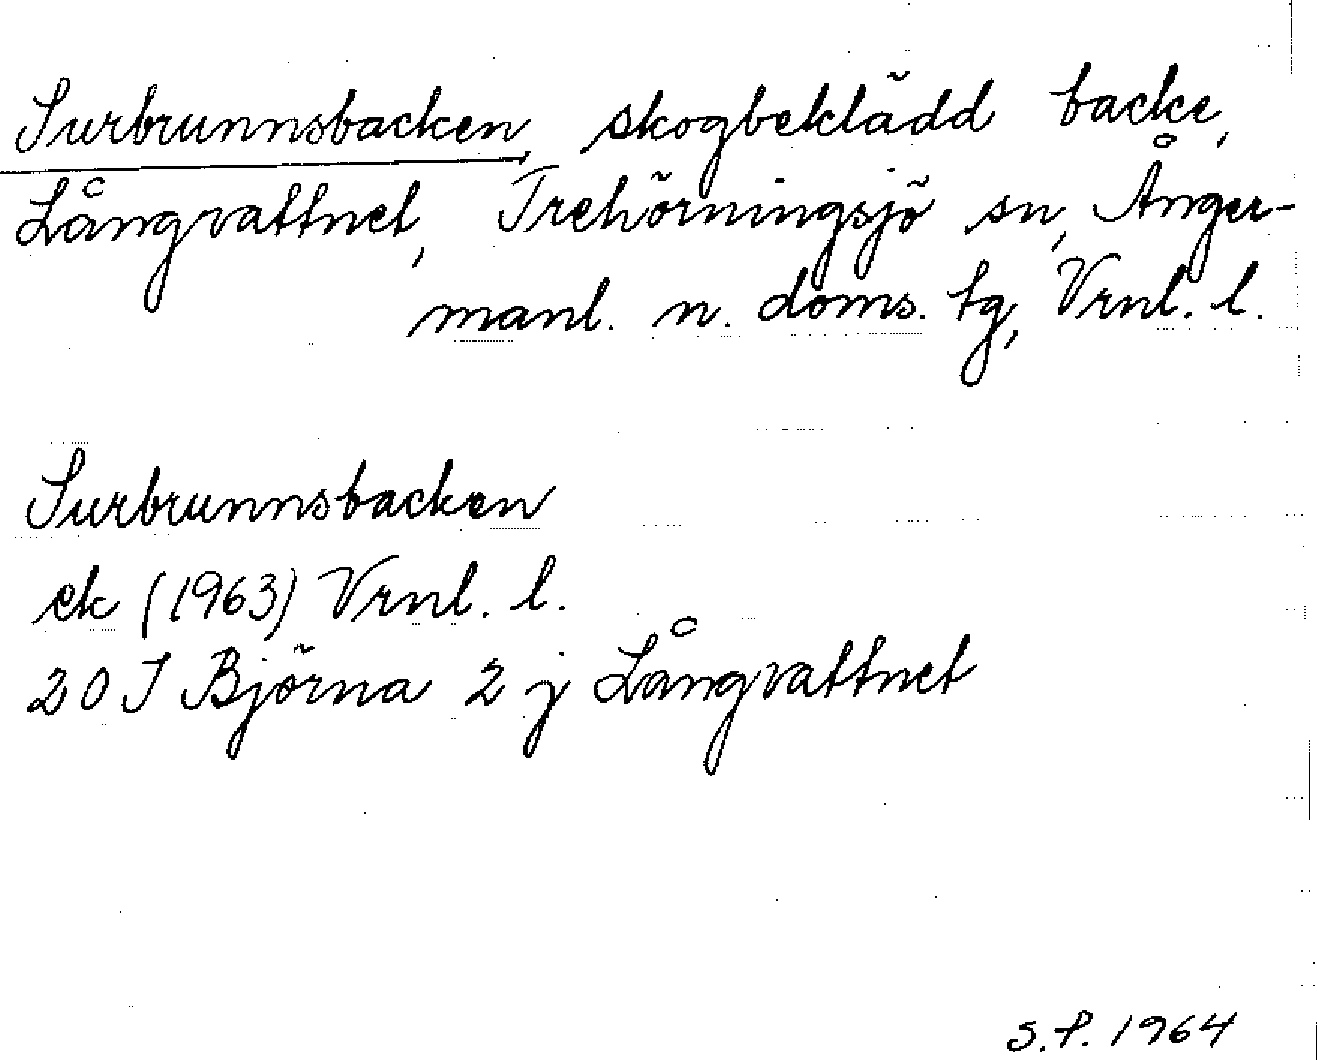 Surbrunnsbacken, skogbeklädd backe,
Långvattnet, Trehörningsjö sn, Ånger-
manl. n. doms. tg, Vrnl. l.
Surbrunnsbacken
ek (1963) Vrnl. l.
20 I Björna 2 j Långvattnet
S.P. 1964